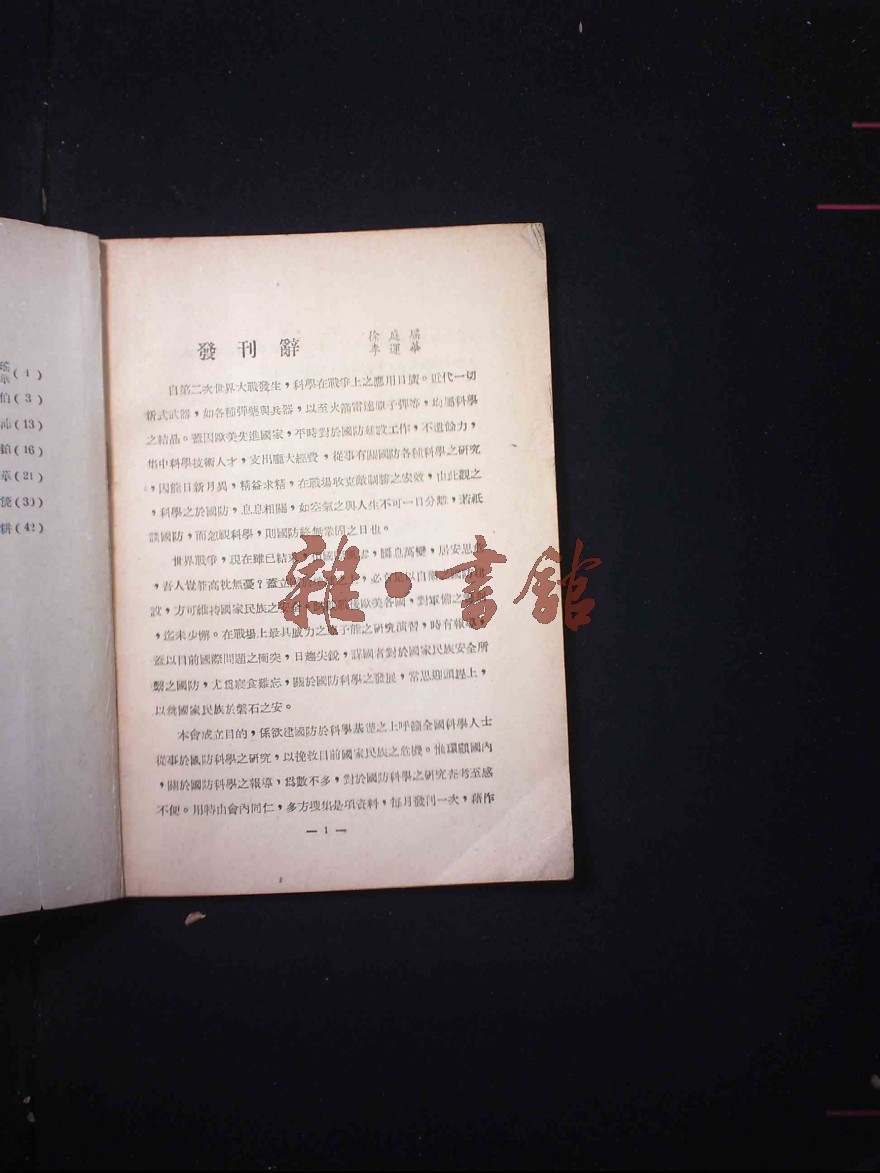 瑤
華(1)
伯(3)
沛(9)
柏(16)
華(21)
饒(3))
耕(42)
發刊辭
徐庭瑤
李運華
自第二次世界大戰發生,科學在戰爭上之應用日廣。近代一切
新式武器,如各種彈藥與兵器,以至火箭雷達原子彈等,均屬科學
之結晶。蓋因歐美先進國家,平時對於國防建設工作,不遺餘力,
集中科學技術人才,支出龐大經費,從事有關國防各種科學之研究
,因能日新月異,精益求精,在戰場收克敵制勝之宏效,由此觀之
,科學之於國防,息息相關,如空氣之與人生不可一日分離,若祇
談國防,而忽視科學,則國防終無鞏固之日也。
世界戰爭,現在雖已結束,國際,瞬息萬變,居安思危
,吾人豈能高枕無憂?蓋立國於,必有足以自衛之國防建
設,方可維持國家民族之安後歐美各國,對軍備之
,迄未少懈。在戰場上最具威力之原子能之研究演習,時有報導,
蓋以目前國際問題之衝突,日趨尖銳,謀國者對於國家民族安全所
繫之國防,尤爲寢食難忘,關於國防科學之發展,當思迎頭趕上,
以奠國家民族於磐石之安。
本會成立目的,係欲建國防於科學基礎之上呼籲全國科學人士
從事於國防科學之研究,以挽救目前國家民族之危機。惟環顧國內
,關於國防科學之報導,爲數不多,對於國防科學之研究查考至感
不便。用特由會內同仁,多方搜集是項資料,每月發刊一次,藉作
— 1 —
雜·書館